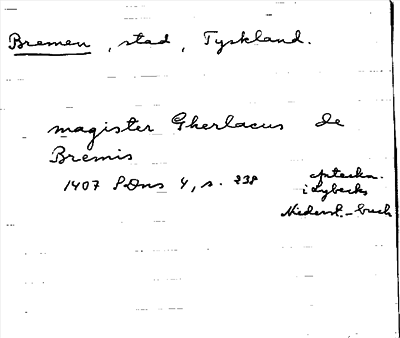 Bremen, stad, Tyskland.
magister Gherlacus de
Bremis
1407 SDns 4, s. 238
i Lybecks
Niederst.-buch